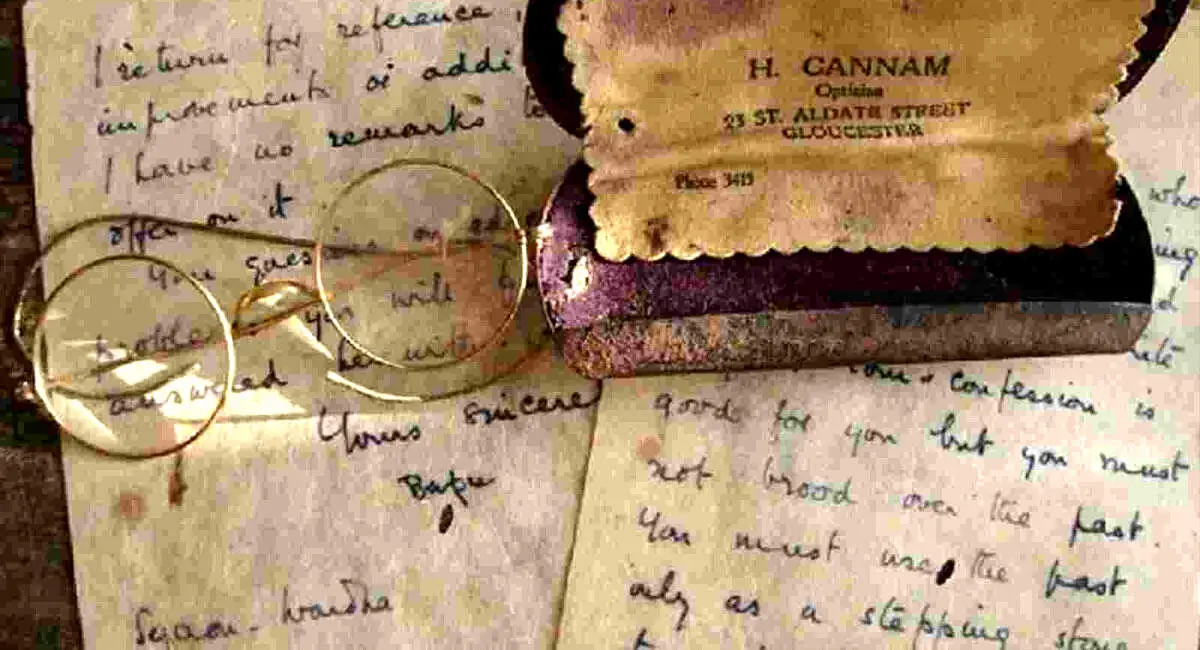 I return for reference
improvements or addi
I have no remarks to
offer on it.
You
you will
answered
Yours sincere
Bapu
Segaon-Wardha
H. CANNAM
Optician
23 ST. ALDATE STREET
GLOUCESTER
Phone 3415
who
confession is
good for you but you must
not brood over the past.
You must use the past
only as a stepping stone